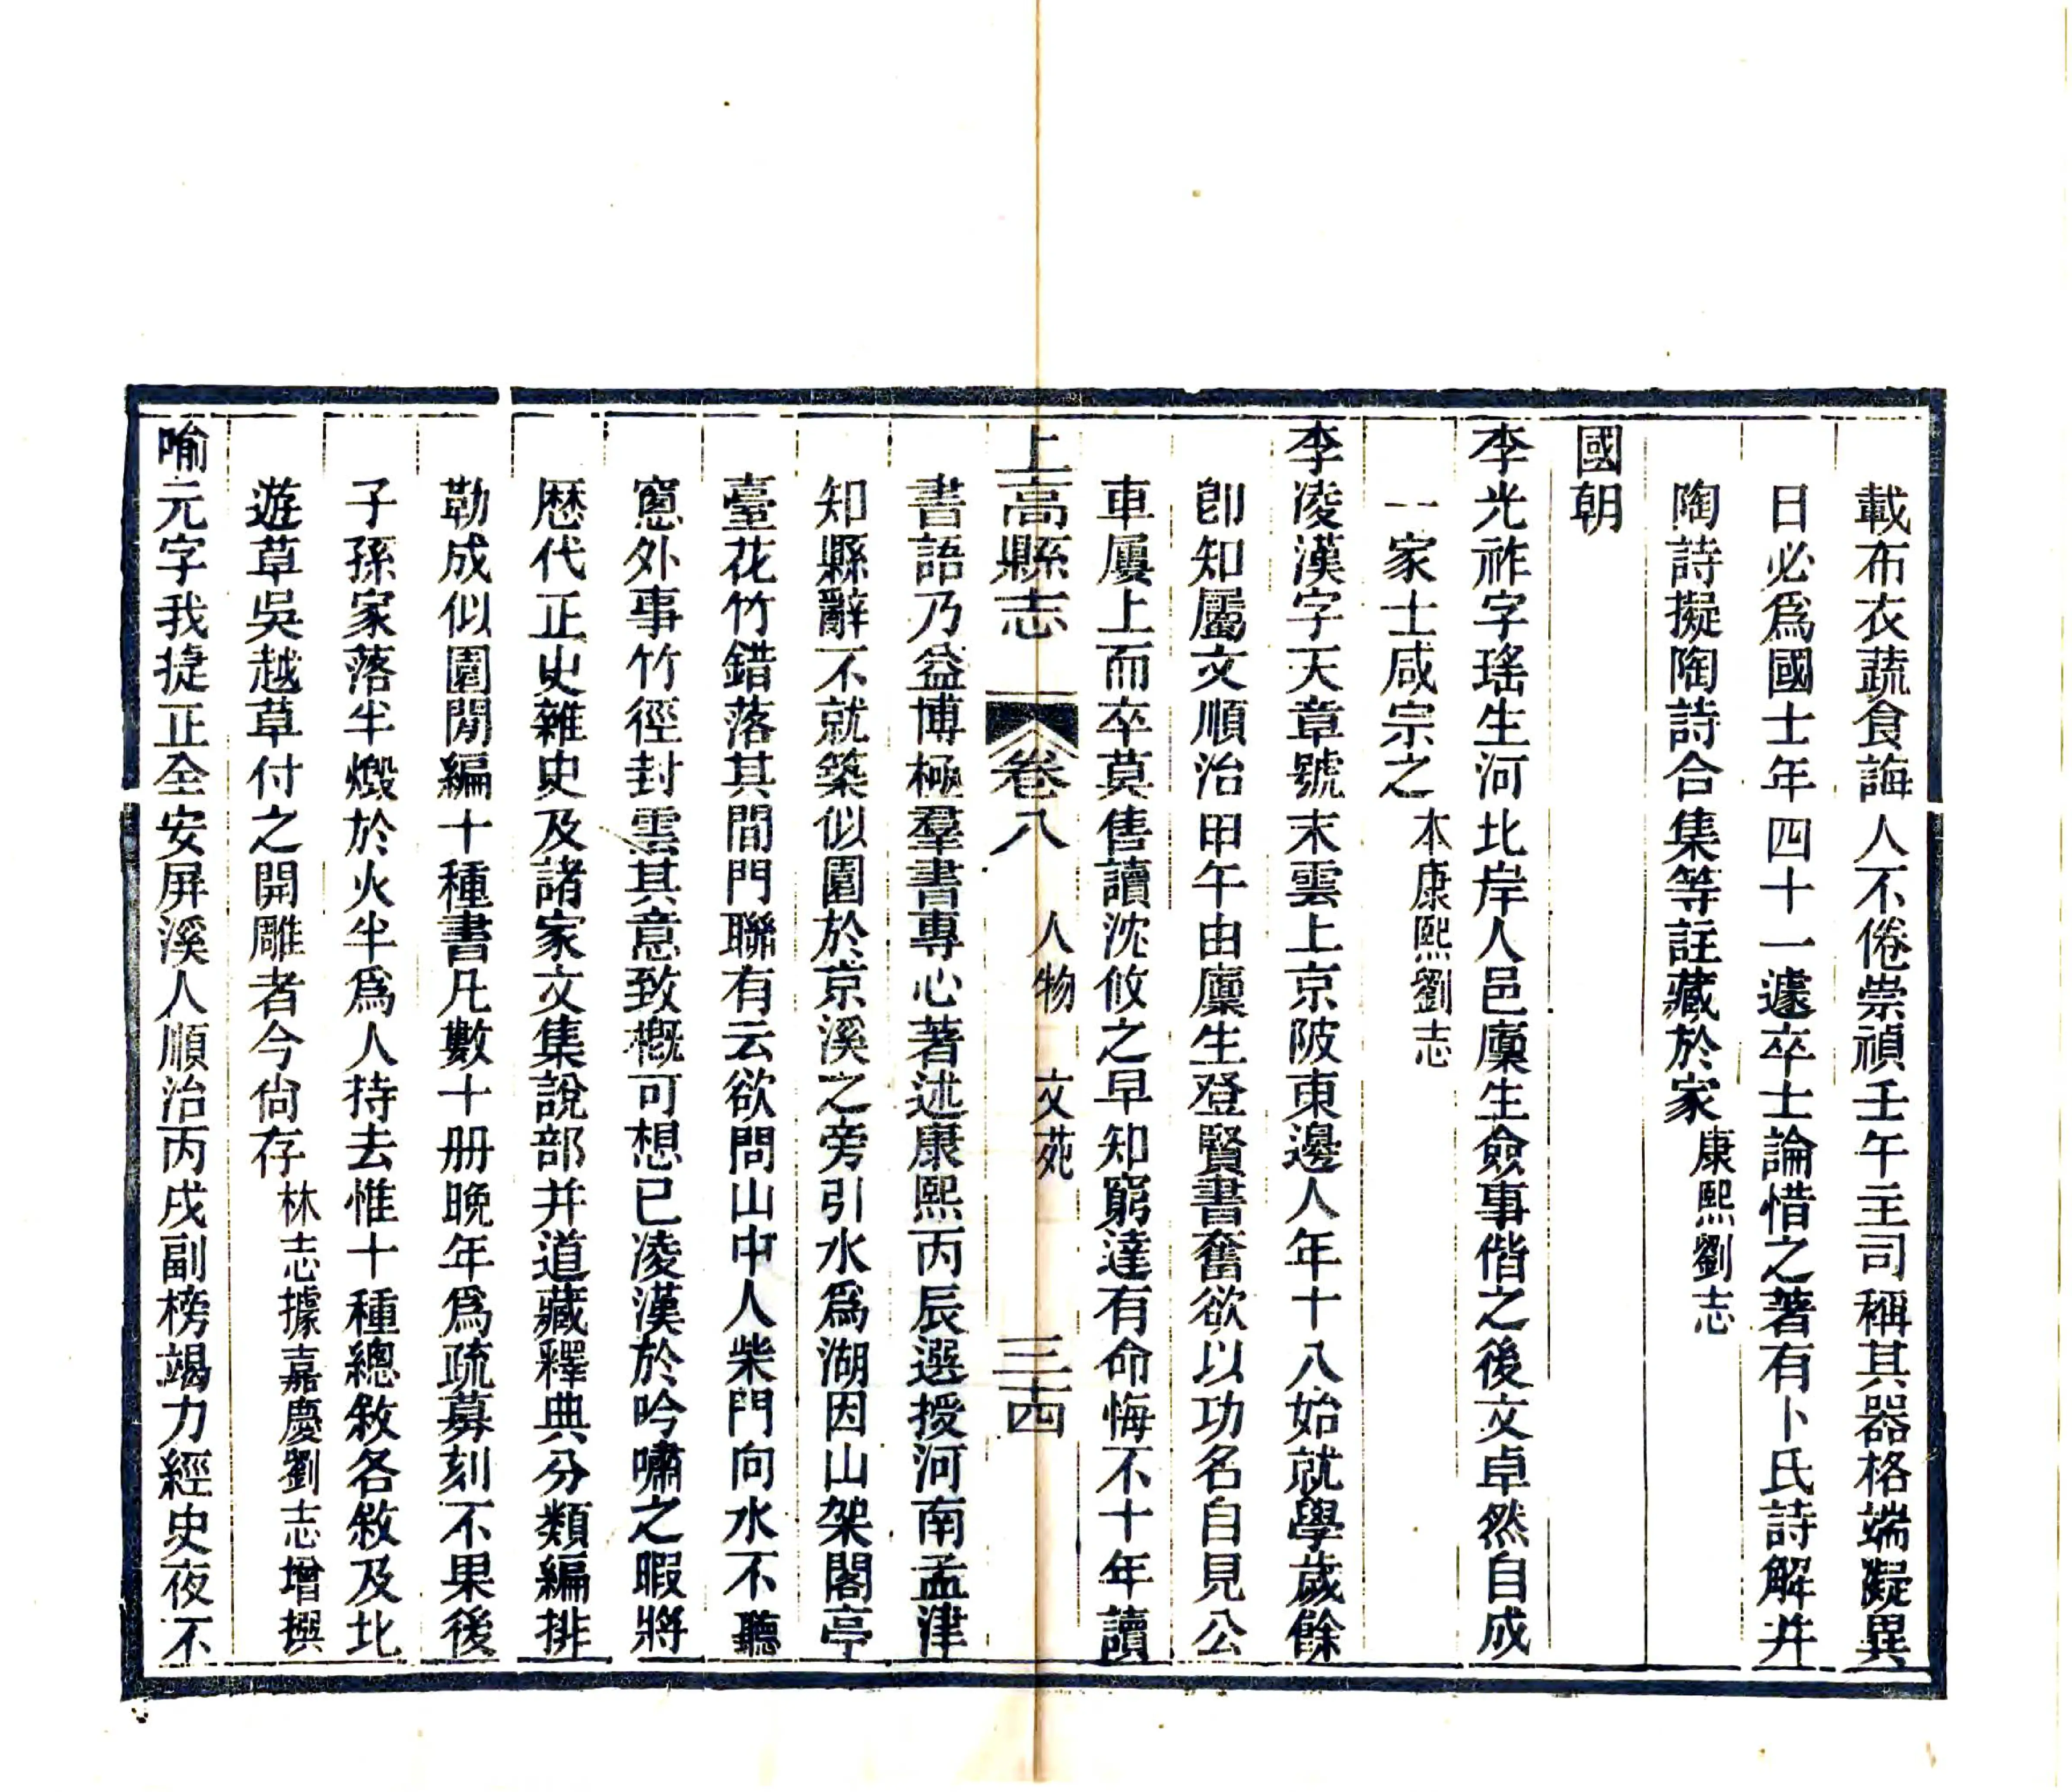 載布衣蔬食誨人不倦崇禎壬午主司稱其器格端凝異
日必爲國士年四十一遽卒士論惜之著有卜氏詩解并
陶詩擬陶詩合集等註藏於家康熙劉志
國朝
李光祚字瑤生河北岸人邑廩生僉事偕之後文卓然自成
一家士咸宗之本康熙劉志
李凌漢字天章號末雲上京陂東邊人年十八始就學歲餘
卽知屬文順治甲午由廩生登賢書奮欲以功名自見公
車屢上而卒莫售讀沈攸之早知窮達有命悔不十年讀
上高縣志 卷八 人物 文苑 三十四
書語乃益博極羣書專心著述康熙丙辰選授河南孟津
知縣辭不就築似園於京溪之旁引水爲湖因山架閣亭
臺花竹錯落其間門聯有云欲問山中人柴門向水不聽
窻外事竹徑封雲其意致槪可想已凌漢於吟嘯之暇將
歷代正史雜史及諸家文集說部并道藏釋典分類編排
勒成似園閒編十種書凡數十册晚年爲疏募刻不果後
子孫家落半燬於火半爲人持去惟十種總敘各敘及北
遊草吳越草付之開雕者今尙存林志據嘉慶劉志增撰
喻元字我捷正全安屏溪人順治丙戌副榜竭力經史夜不